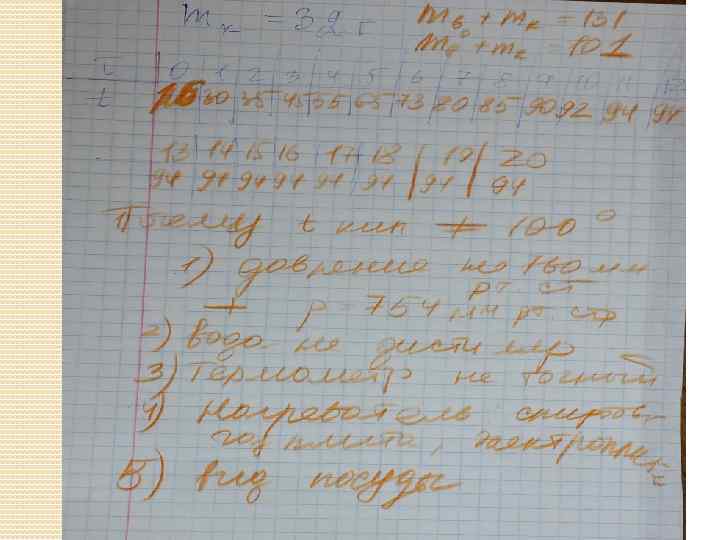 mк = 32 г
mв + mк = 131
mв + mк = 101
τ 0 1 2 3 4 5 6 7 8 9 10 11 12
t 16 30 35 45 55 65 73 80 85 90 92 94 94
13 14 15 16 17 18 19 20
94 94 94 94 94 94 94 94
Почему t кип ≠ 100°
1) давление не 760 мм
рт. ст
p = 754 мм рт. стр
2) вода не дистилир
3) Термометр не точный
4) Нагреватель спиртов.
газ плита, электроплитк
5) Вид посуды